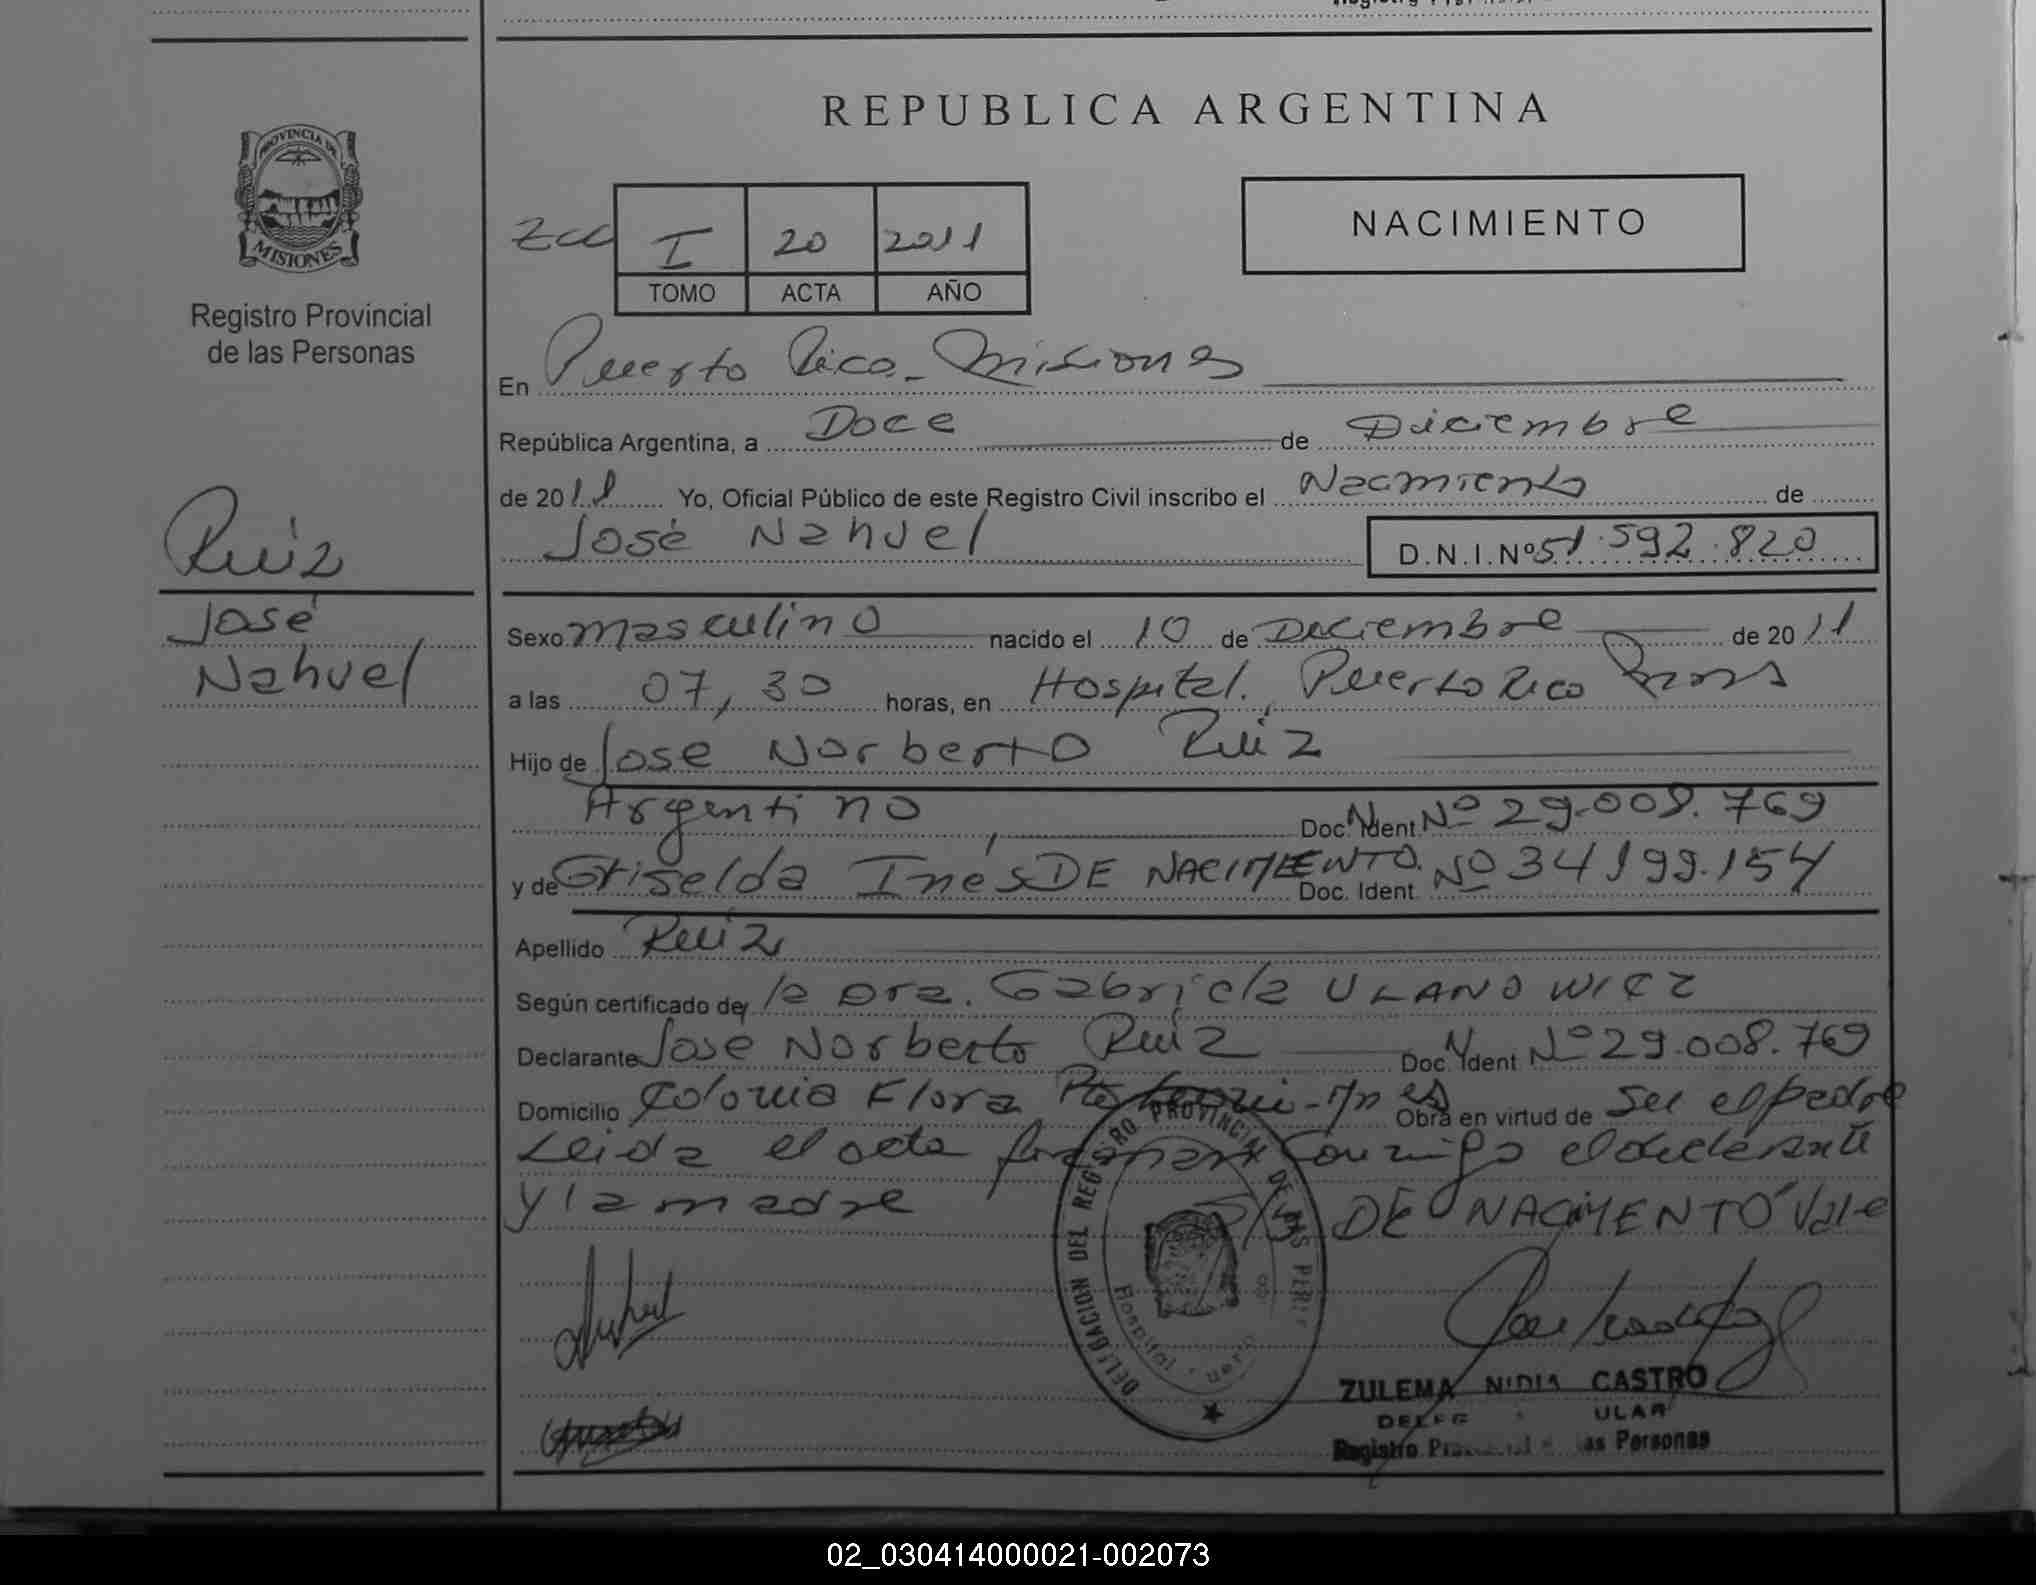 REPUBLICA ARGENTINA
PROVINCIA DE
MISIONES
Registro Provincial
de las Personas
I 20 2011
TOMO ACTA AÑO
NACIMIENTO
En Puerto Rico - Misiones
República Argentina, a Doce de Diciembre
de 2011 Yo, Oficial Público de este Registro Civil inscribo el Nacimiento de
José Nahuel D.N.I.Nº 51.592.820
Ruiz
José
Nahuel
Sexo masculino nacido el 10 de Diciembre de 2011
a las 07,30 horas, en Hospital. Puerto Rico
Hijo de José Norberto Ruiz
Argentino, Doc. Ident. Nº 29.008.769
y de Griselda Inés DE NACIMIENTO. Doc. Ident. Nº 34199.154
Apellido Ruiz
Según certificado de la Dra. Gabriela ULANOWICZ
Declarante José Norberto Ruiz Doc. Ident Nº 29.008.769
Domicilio Colonia Flora Obra en virtud de ser el padre
Leida el acta firman conmigo el declarante
y la madre S/B DE NACIMIENTO Vale
DELEGACION DEL REGISTRO PROVINCIAL DE LAS PER
Hospital
ZULEMA NIDIA CASTRO
Registro as Personas
02_030414000021-002073